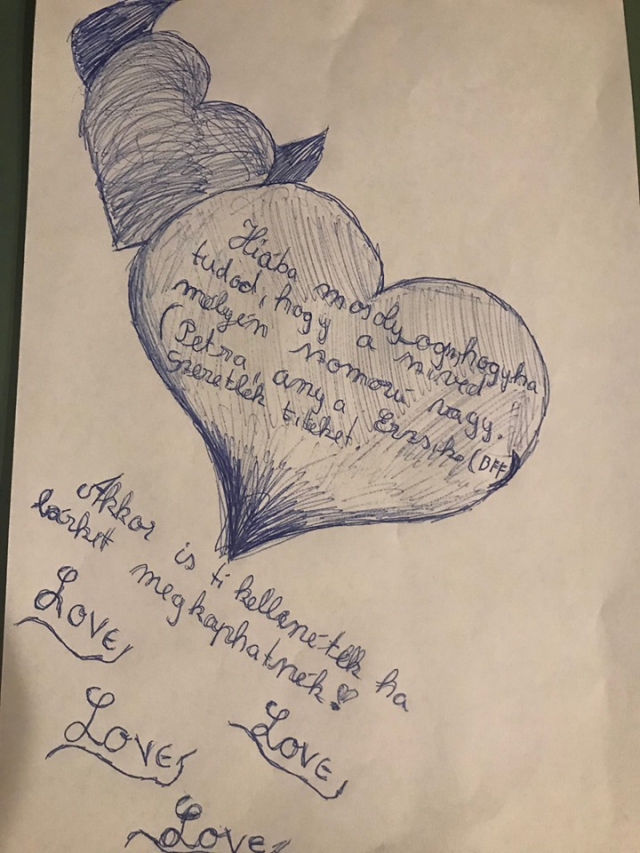 Hiába mosolyogsz, hogyha
tudod, hogy a szíved
mélyén szomorú vagy.
(Petra, anya Erzsike (BFF)
Szeretlek titeket.
Akkor is ti kellenétek ha
bárkit megkaphatnék!
Love
Love
Love
Love